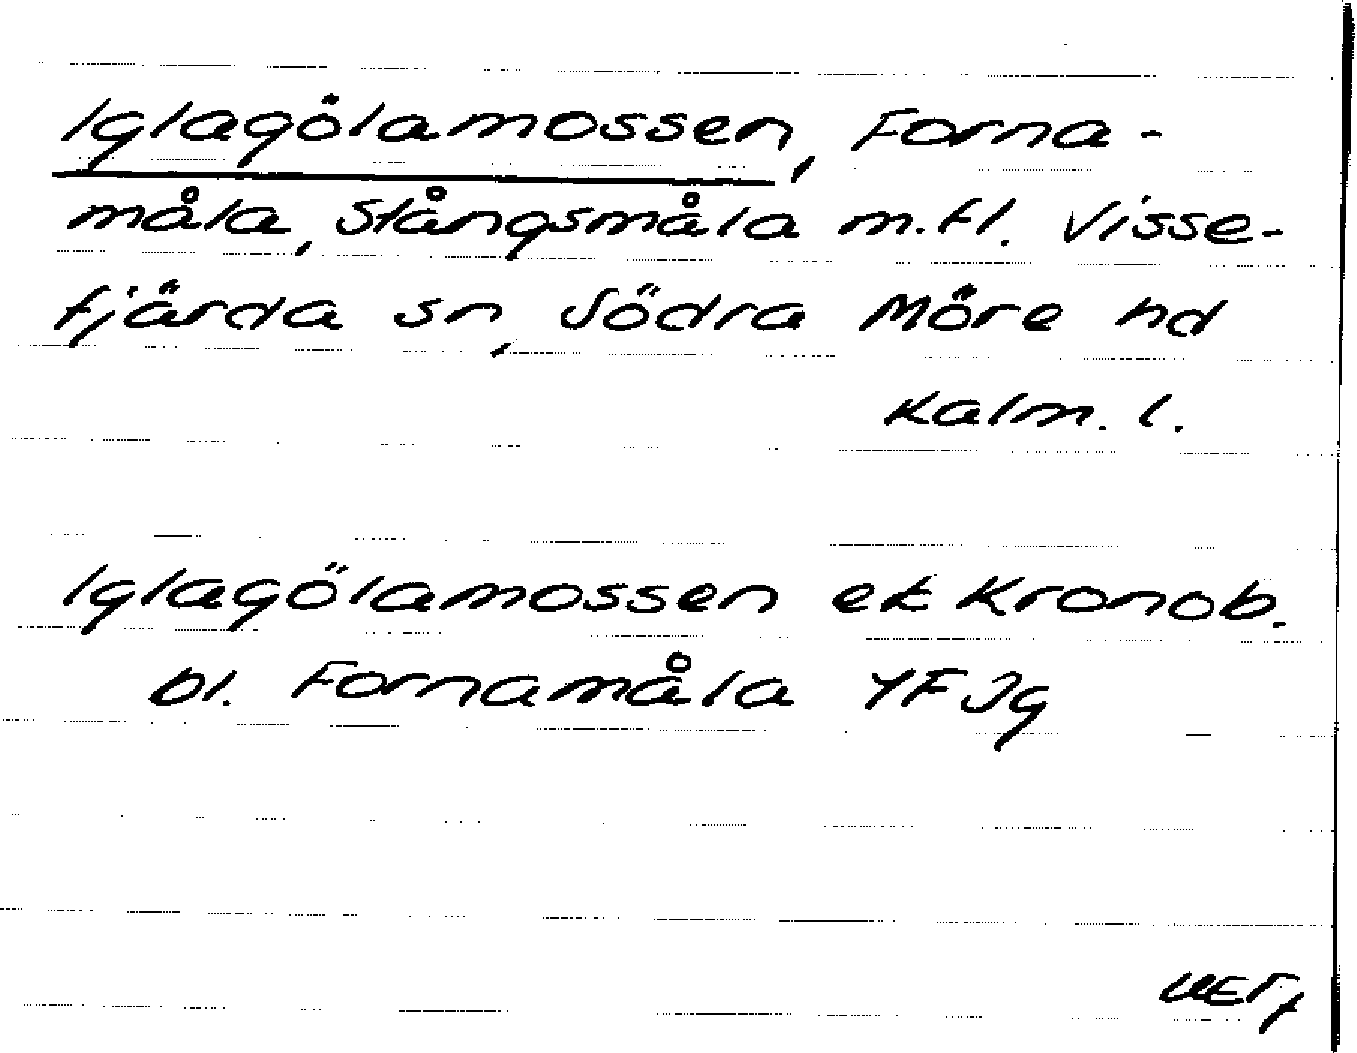 Iglagölamossen, Forna-
måla, Stångsmåla m.fl. Visse-
fjärda sn, Södra Möre hd
Kalm. l.
Iglagölamossen ek Kronob.
bl. Fornamåla YFJg